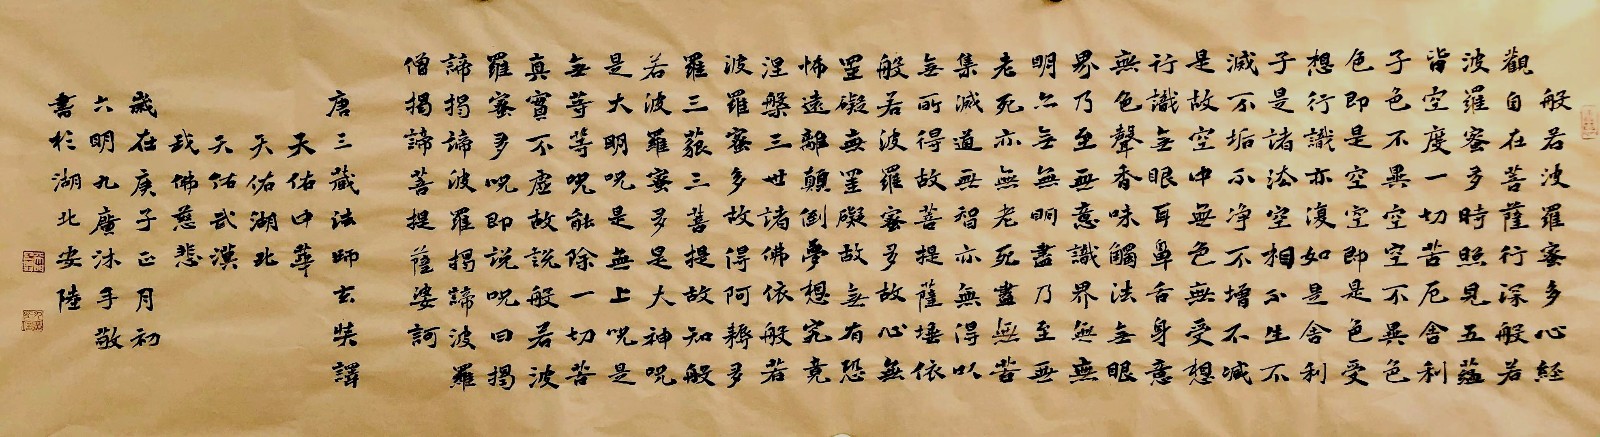 般若波羅蜜多心經
觀自在菩薩行深般若
波羅蜜多時照見五蘊
皆空度一切苦厄舍利
子色不異空空不異色
色即是空空即是色受
想行識亦復如是舍利
子是諸法空相不生不
滅不垢不净不增不减
是故空中無色無受想
行識無眼耳鼻舌身意
無色聲香味觸法無眼
界乃至無意識界無無
明亦無無明盡乃至無
老死亦無老死盡無苦
集滅道無智亦無得以
無所得故菩提薩埵依
般若波羅蜜多故心無
罣礙無罣礙故無有恐
怖遠離顛倒夢想究竟
涅槃三世諸佛依般若
波羅蜜多故得阿耨多
羅三藐三菩提故知般
若波羅蜜多是大神呪
是大明呪是無上呪是
無等等呪能除一切苦
真實不虛故說般若波
羅蜜多呪即說呪曰揭
諦揭諦波羅揭諦波羅
僧揭諦菩提薩婆訶
唐三藏法師玄奘譯
天佑中華
天佑湖北
天佑武漢
我佛慈悲
歲在庚子正月初
六明九沐手敬
書於湖北安陸